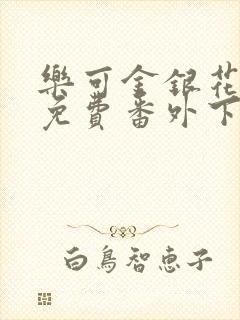 樂可金銀花
免費番外下
白鳥智恵子